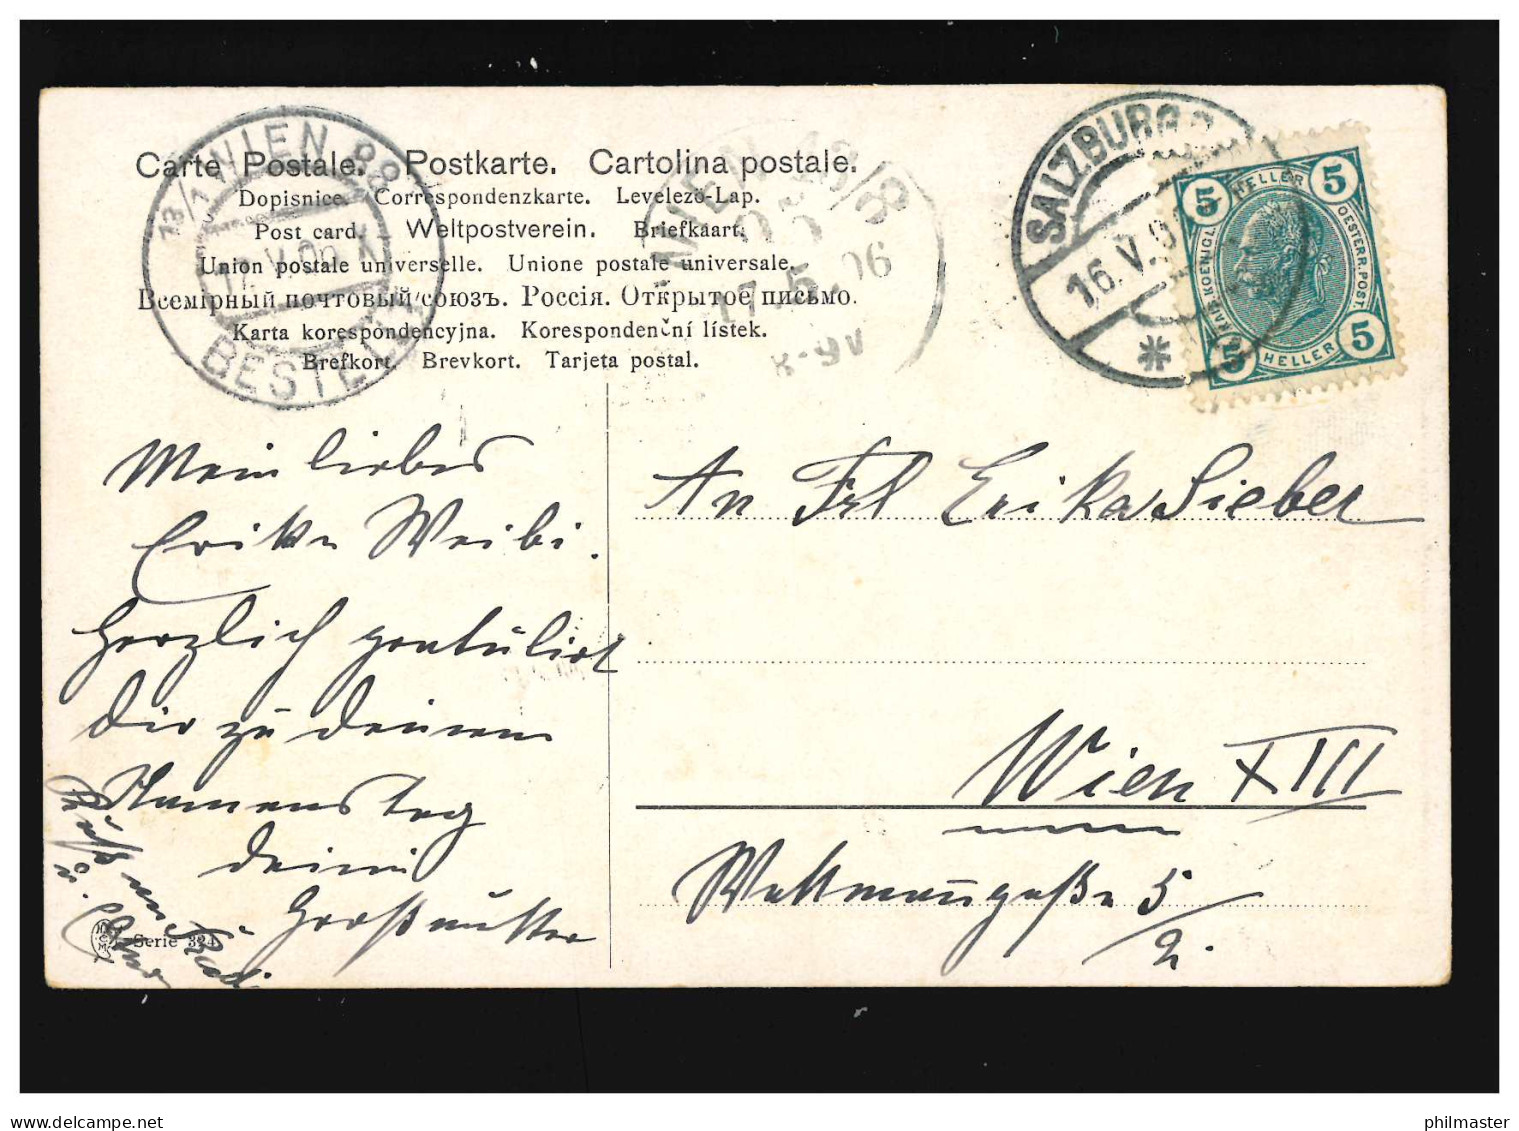 Carte Postale. Postkarte. Cartolina postale.
Dopisnice. Correspondenzkarte. Levelező-Lap.
Post card. Weltpostverein. Briefkaart.
Union postale universelle. Unione postale universale.
Всемірный почтовый союзъ. Россія. Открытое письмо.
Karta korespondencyjna. Korespondenční lístek.
Brefkort. Brevkort. Tarjeta postal.
13/1 WIEN 88
17. V. 06
BESTELLT
WIEN
17. 5. 06
8-9V
SALZBURG 2
16. V. 0
5 HELLER 5
KAIS. KOENIGL. OESTERR. POST.
5 HELLER 5
Mein liebes
Erika Weibi.
Herzlich gratulirt
dir zu deinem
Namenstag
deine
Großmutter
An Frl Erika Sieber
Wien XIII
Wattmanngasse 5/2.
Serie 324
delcampe.net
philmaster